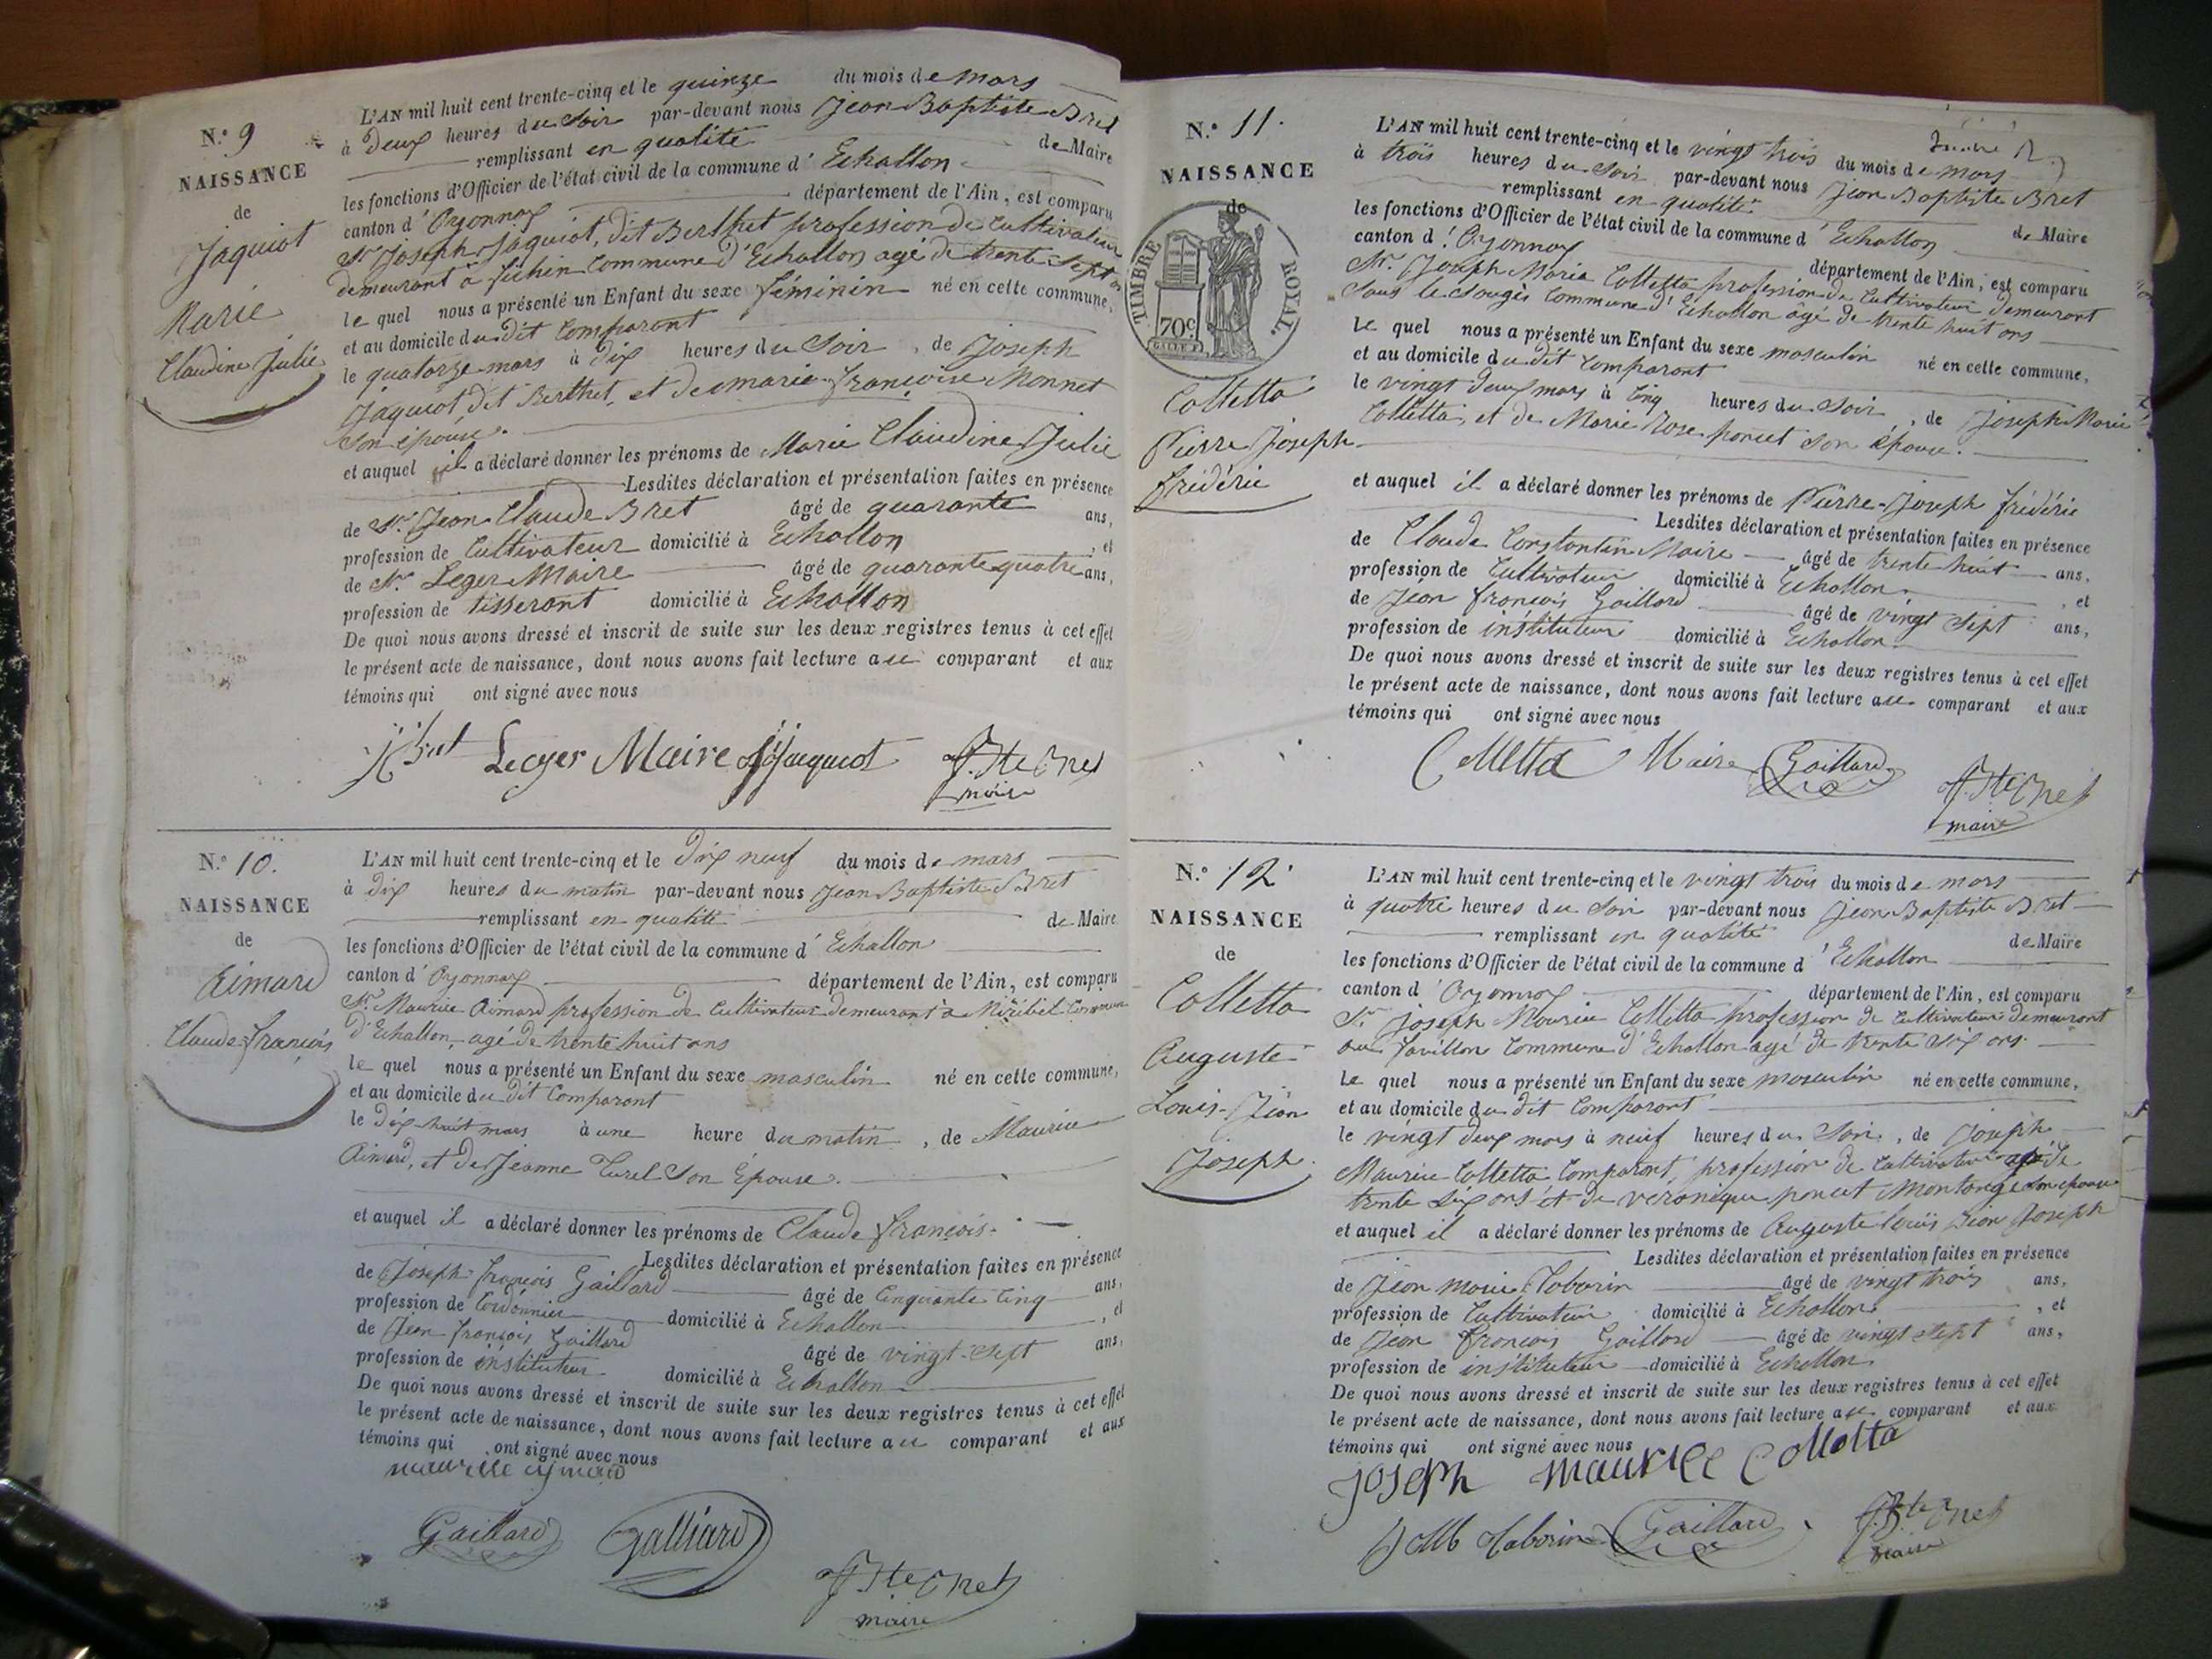 N.° 9
NAISSANCE
de
Jaquiot
Marie
Claudine Julie
L'AN mil huit cent trente-cinq et le quinze du mois de mars
à Deux heures du Soir par-devant nous Jean Baptiste Bret
remplissant en qualité de Maire
les fonctions d'Officier de l'état civil de la commune d' Echallon
canton d' Oyonnax département de l'Ain, est comparu
Sr. Joseph Jaquiot, dit Berthet profession de Cultivateur
demeurant à commune d'Echallon agé de trente sept ans
le quel nous a présenté un Enfant du sexe féminin né en cette commune,
et au domicile du dit Comparant
le quatorze mars à Dix heures du Soir, de Joseph
Jaquiot dit Berthet, et de marie françoise Monnet
Son épouse.
et auquel il a déclaré donner les prénoms de Marie Claudine Julie
Lesdites déclaration et présentation faites en présence
de Sr. Jean Claude Bret âgé de quarante ans,
profession de Cultivateur domicilié à Echallon, et
de Sr. Leger Maire âgé de quarante quatre ans,
profession de tisserant domicilié à Echallon
De quoi nous avons dressé et inscrit de suite sur les deux registres tenus à cet effet
le présent acte de naissance, dont nous avons fait lecture au comparant et aux
témoins qui ont signé avec nous
Leger Maire Jaquiot J. Bte Bret
maire
N.° 10.
NAISSANCE
de
Aimard
Claude françois
L'AN mil huit cent trente-cinq et le dix neuf du mois de mars
à dix heures du matin par-devant nous Jean Baptiste Bret
remplissant en qualité de Maire
les fonctions d'Officier de l'état civil de la commune d' Echallon
canton d' Oyonnax département de l'Ain, est comparu
Sr. Maurice Aimard profession de Cultivateur demeurant à Miribel Commune
d'Echallon, agé de trente huit ans
le quel nous a présenté un Enfant du sexe masculin né en cette commune,
et au domicile du dit Comparant
le dix huit mars à une heure du matin, de Maurice
Aimard, et de Jeanne Turel Son Épouse.
et auquel il a déclaré donner les prénoms de Claude françois.
Lesdites déclaration et présentation faites en présence
de Joseph françois Gaillard âgé de Cinquante Cinq ans,
profession de Cordonnier domicilié à Echallon, et
de Jean françois Gaillard âgé de vingt-sept ans,
profession de instituteur domicilié à Echallon
De quoi nous avons dressé et inscrit de suite sur les deux registres tenus à cet effet
le présent acte de naissance, dont nous avons fait lecture au comparant et aux
témoins qui ont signé avec nous
Gaillard Galliard
J. Bte Bret
maire
N.° 11.
NAISSANCE
de
TIMBRE ROYAL.
70c
Colletta
Pierre Joseph
frédéric
L'AN mil huit cent trente-cinq et le vingt trois du mois de mars
à trois heures du Soir par-devant nous Jean Baptiste Bret
remplissant en qualité de Maire
les fonctions d'Officier de l'état civil de la commune d' Echallon
canton d' Oyonnax département de l'Ain, est comparu
Sr. Joseph Marie Colletta profession de Cultivateur demeurant
Sous le Commune d'Echallon agé de trente huit ans
le quel nous a présenté un Enfant du sexe masculin né en cette commune,
et au domicile du dit Comparant
le vingt deux mars à Cinq heures du Soir, de Joseph Marie
Colletta, et de Marie Rose poncet son épouse.
et auquel il a déclaré donner les prénoms de Pierre-Joseph frédéric
Lesdites déclaration et présentation faites en présence
de Claude Constantin Maire âgé de trente huit ans,
profession de Cultivateur domicilié à Echallon, et
de Jean françois Gaillard âgé de vingt Sept ans,
profession de instituteur domicilié à Echallon
De quoi nous avons dressé et inscrit de suite sur les deux registres tenus à cet effet
le présent acte de naissance, dont nous avons fait lecture au comparant et aux
témoins qui ont signé avec nous
Colletta Maire Gaillard J. Bte Bret
maire
N.° 12
NAISSANCE
de
Colletta
Auguste
Louis-Jean
Joseph
L'AN mil huit cent trente-cinq et le vingt trois du mois de mars
à quatre heures du Soir par-devant nous Jean Baptiste Bret
remplissant en qualité de Maire
les fonctions d'Officier de l'état civil de la commune d' Echallon
canton d' Oyonnax département de l'Ain, est comparu
Sr. Joseph Maurice Colletta profession de Cultivateur demeurant
au Favillon Commune d'Echallon agé de trente six ans.
le quel nous a présenté un Enfant du sexe masculin né en cette commune,
et au domicile du dit Comparant
le vingt deux mars à neuf heures du Soir, de Joseph
Maurice Colletta Comparant, profession de Cultivateur agé de
trente six ans et de veronique poncet Montange son épouse
et auquel il a déclaré donner les prénoms de Auguste Louis Jean Joseph
Lesdites déclaration et présentation faites en présence
de Jean Marie Taborin âgé de vingt trois ans,
profession de Cultivateur domicilié à Echallon, et
de Jean françois Gaillard âgé de vingt sept ans,
profession de instituteur domicilié à Echallon
De quoi nous avons dressé et inscrit de suite sur les deux registres tenus à cet effet
le présent acte de naissance, dont nous avons fait lecture au comparant et aux
témoins qui ont signé avec nous
Joseph maurice Colletta
JM Taborin Gaillard J. Bte Bret
maire